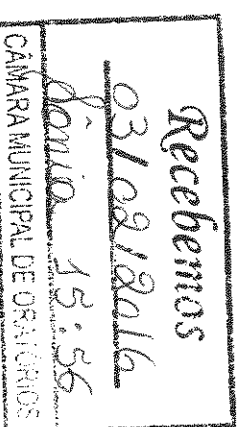 Recebemos
03/02/2016
Sônia 15:56
CÂMARA MUNICIPAL DE ORATÓRIOS